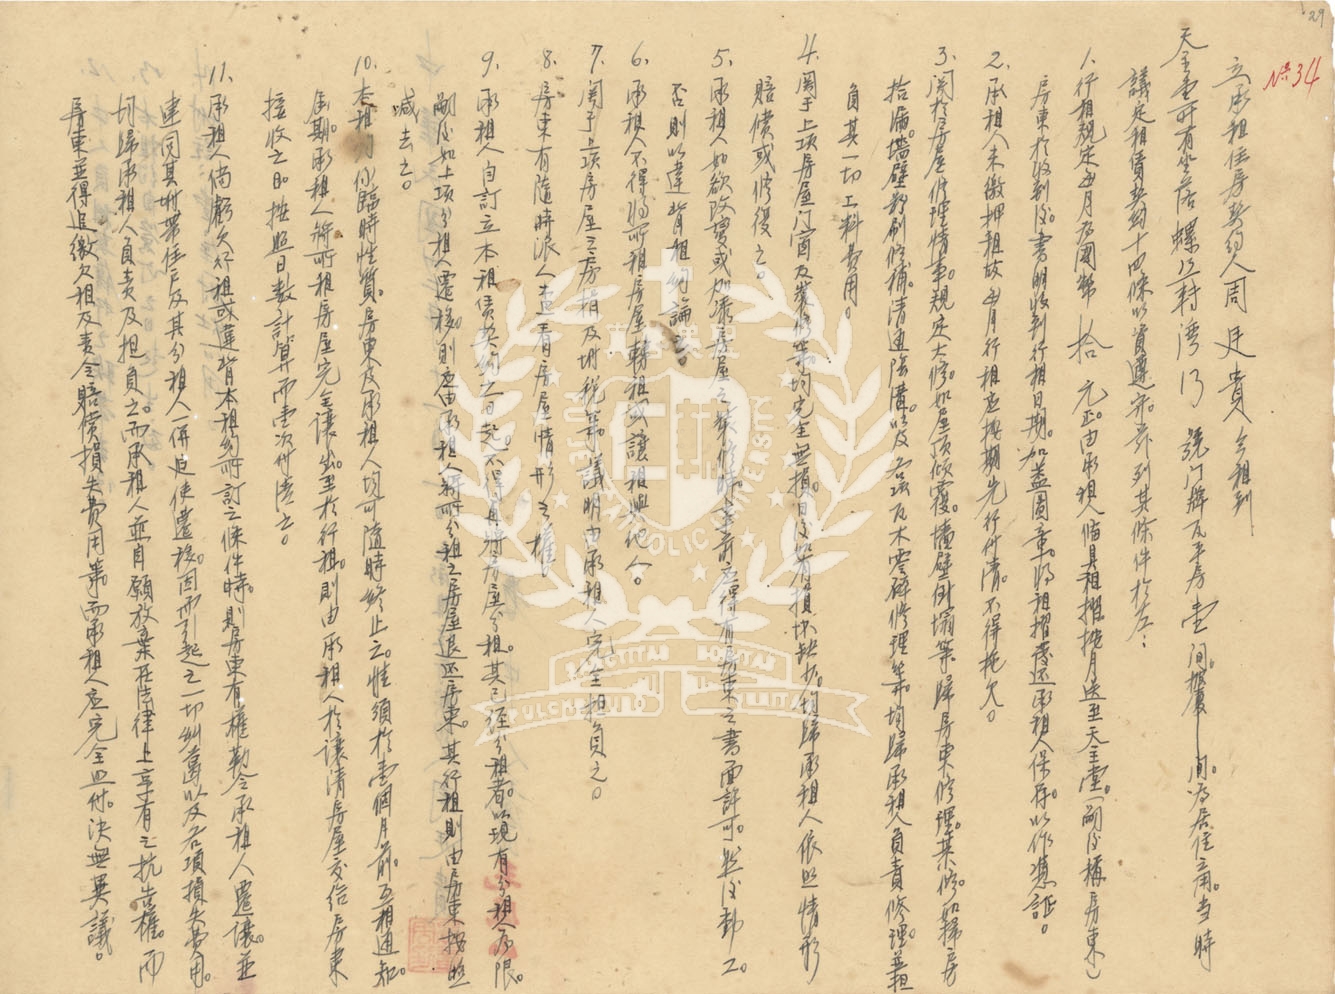 29
№ 34
立承租住房契約人周廷貴今租到
天主堂所有坐落螺螄灣 號門牌瓦平房壹間。披厦 間。為居住之用。當時
議定租賃契約十四條以資遵守。茲列其條件於左：
1. 行租規定每月為國幣 拾 元正。由承租人備具租摺按月送至天主堂。（嗣後稱房東）
房東於收到後。書明收到行租日期。加蓋圖章。將租摺發還承租人保存。以作憑証。
2. 承租人未繳押租故每月行租應按期先行付清。不得拖欠。
3. 関於房屋修理情事。規定大修。如屋頂傾覆。墻壁倒塌等。歸房東修理。其修。如掃房
拾漏。墻壁粉刷修補。清通陰溝。以及 磚瓦木零碎修理等。均歸承租人負責修理。並担
負其一切工料費用。
4. 関于上項房屋門窗及裝修等。均完全無損。日後如有損壞缺少。均歸承租人依照情形
賠償或修復之。
5. 承租人如欲改變或加添房屋之裝修時。事前應得有房東之書面許可。然後動工。
否則以違背租約論。
6. 承租人不得將所租房屋轉租或讓租與他人。
7. 関于上項房屋之房捐及附稅等。議明由承租人完全担負之。
8. 房東有隨時派人查看房屋情形之權。
9. 承租人自訂立本租賃契約之日起。不得再將房屋分租。其已經分租者。以現有分租人為限。
嗣後如上項分租人遷移。則應由承租人將所分租之房屋退還房東。其行租則由房東按照
減去之。
10. 本租約係臨時性質。房東及承租人均可隨時終止之。惟須於壹個月前。互相通知。
屆期。承租人將所租房屋完全讓出。至於行租。則由承租人於讓清房屋交給房東
接收之日。按照日數計算而壹次付清之。
11. 承租人倘虧欠行租或違背本租約所訂之條件時。則房東有權勒令承租人遷讓。並
連同其附帶住戶及其分租人一併迫使遷移。因而引起之一切糾葛以及各項損失費用。
均歸承租人負責及担負之。而承租人並自願放棄在法律上享有之抗告權。而
房東並得追繳欠租及責令賠償損失費用等。而承租人應完全照付。決無異議。